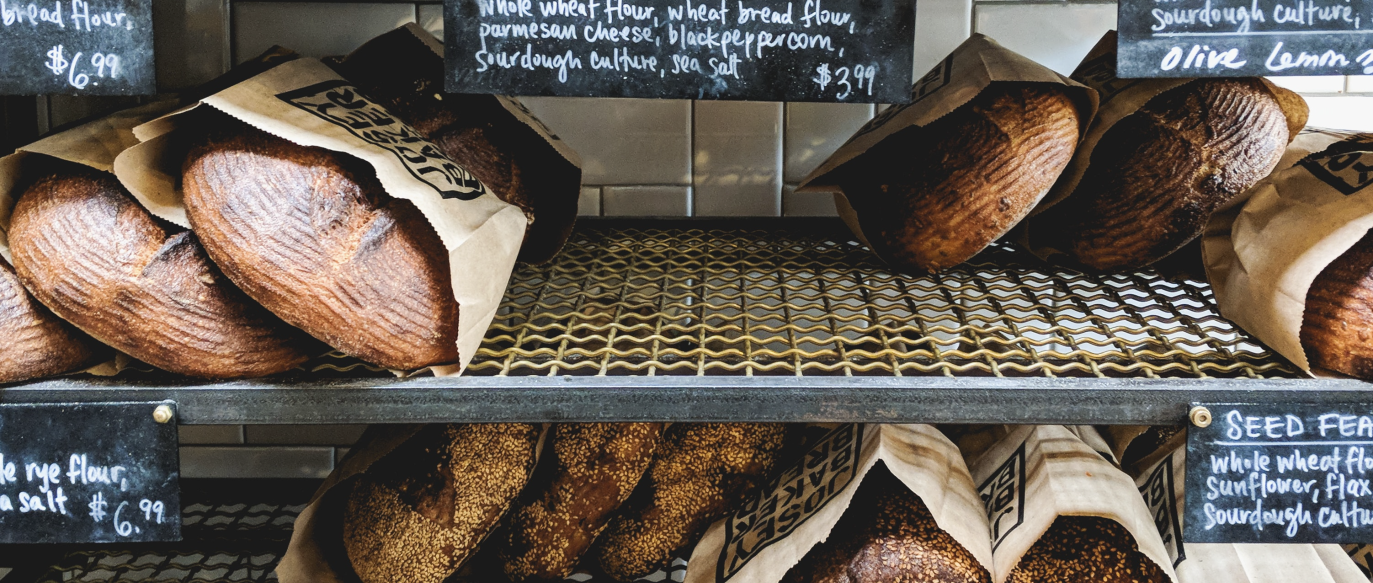 bread flour,
$6.99
whole wheat flour, wheat bread flour,
parmesan cheese, blackpeppercorn,
sourdough culture, sea salt $3.99
sourdough culture,
Olive Lemon
JOSEY
BAKER
BREAD
rye flour,
salt $6.99
JOSEY
BAKER
SEED FEA
whole wheat flo
sunflower, flax
Sourdough Cultu